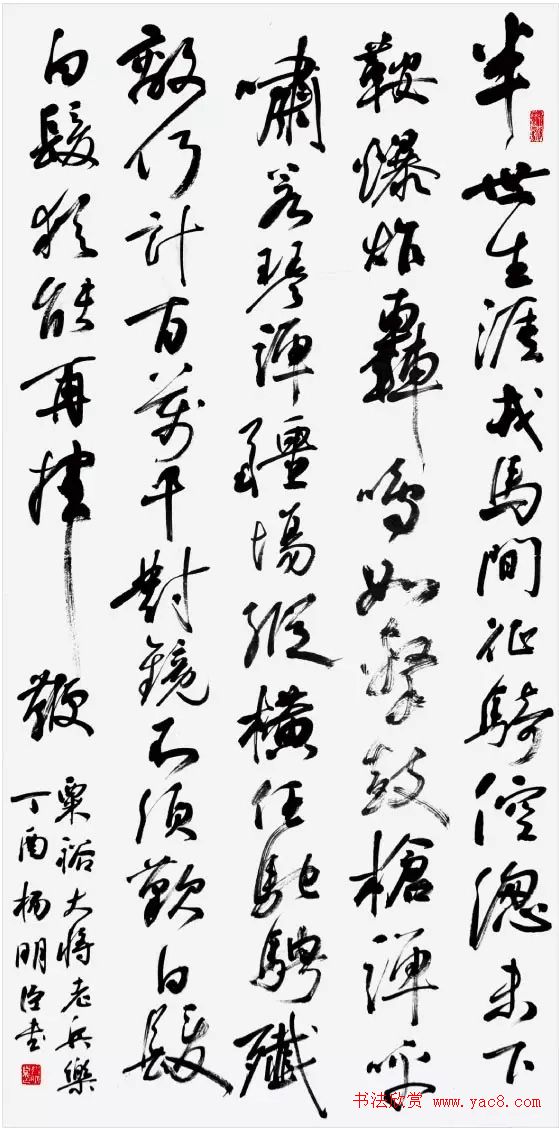 半世生涯戎馬間征騎倥傯未下
鞍爆炸轟鳴如擊鼓槍彈呼
嘯若琴彈疆場縱橫任馳騁殲
敵何計百萬千對鏡不須歎白髮
白髮猶能再揮鞭
粟裕大將老兵樂
丁酉楊明臣书
书法欣赏
www.yac8.com